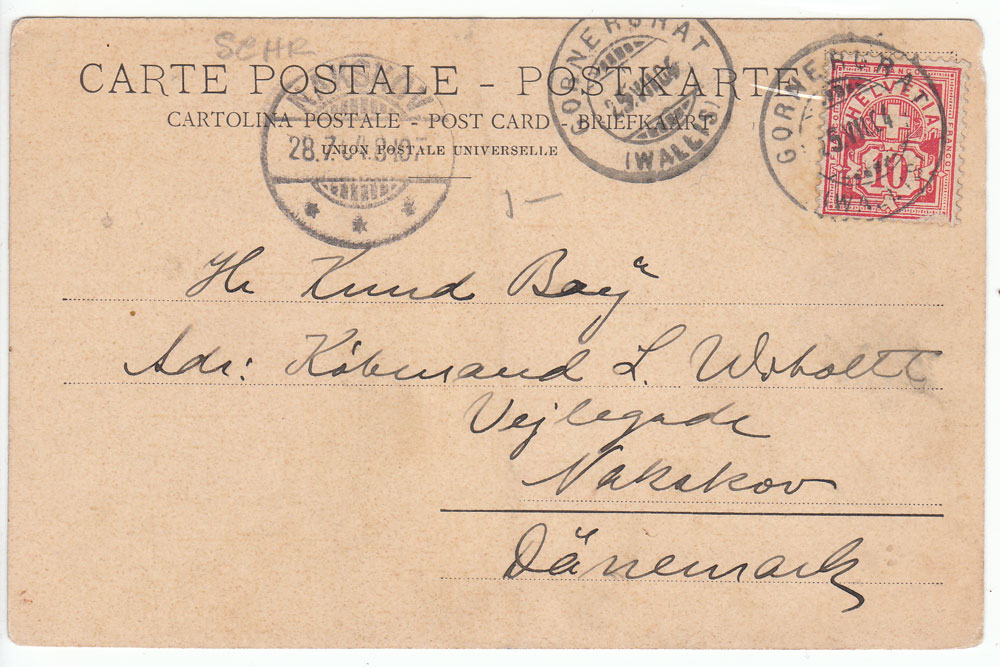 SCHR
CARTE POSTALE – POSTKARTE
CARTOLINA POSTALE – POST CARD – BRIEFKAART
UNION POSTALE UNIVERSELLE
NAKSKOV
28.7.04.8-10F
GORNERGRAT
(WALLIS)
GORNERGRAT
HELVETIA
FRANCO
10
Hr Knud Bay
Adr: Købmand L. Wiboltt
Vejlegade
Nakskov
Dänemark